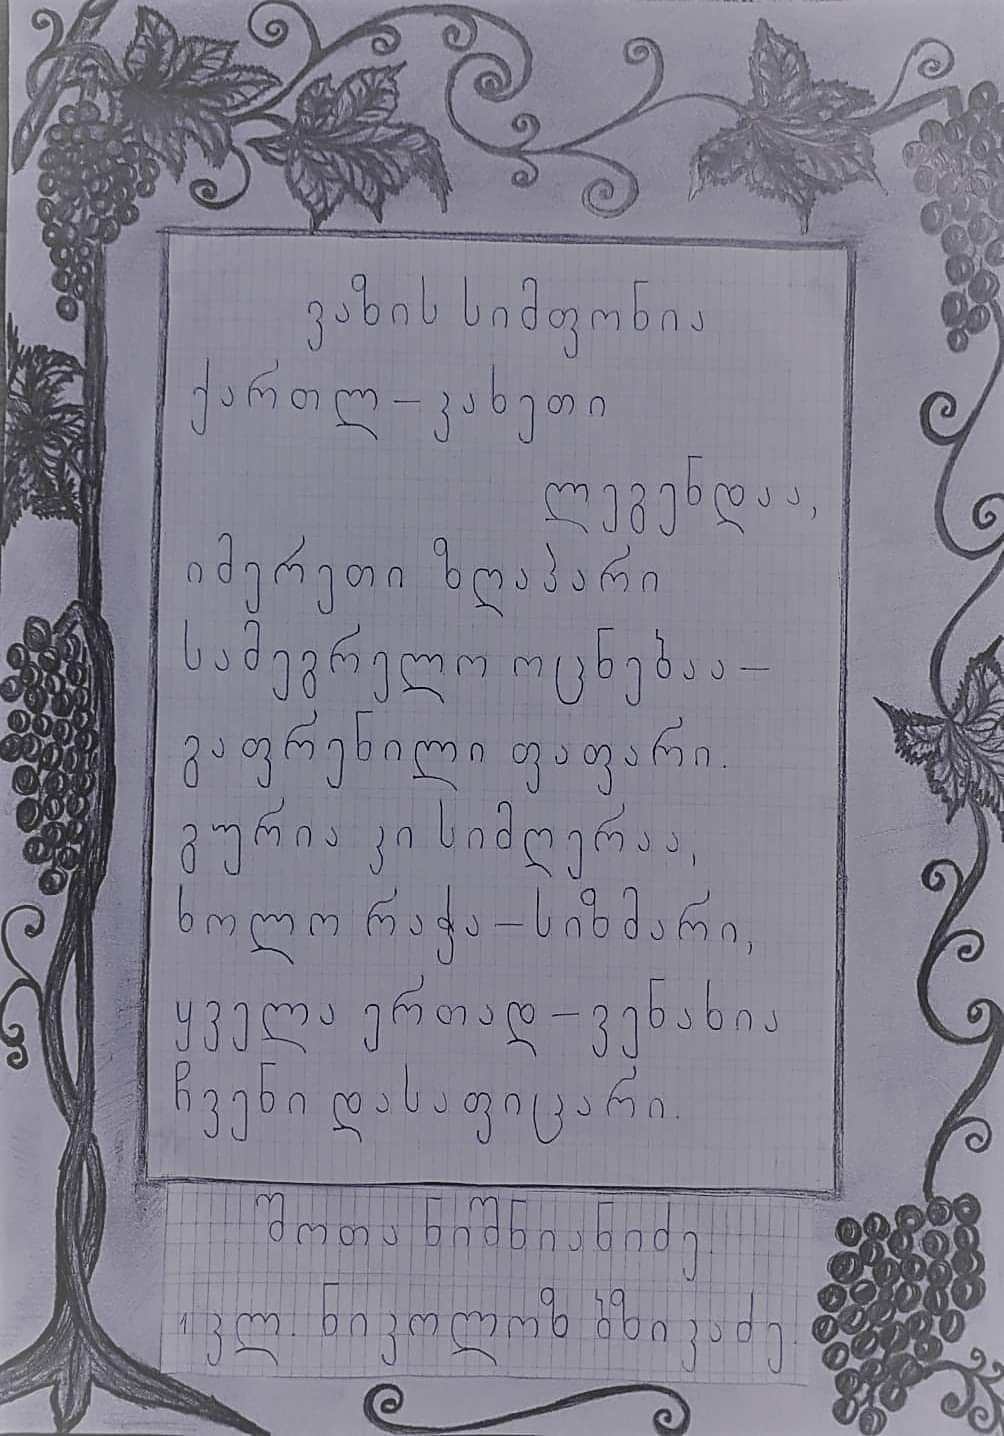 ვაზის სიმფონია
ქართლ-კახეთი
ლეგენდაა,
იმერეთი ზღაპარი
სამეგრელო ოცნებაა-
გაფრენილი ფაფარი.
გურია კი სიმღერაა,
ხოლო რაჭა-სიზმარი,
ყველა ერთად-ვენახია
ჩვენი დასაფიცარი.
შოთა ნიშნიანიძე.
1 კლ. ნიკოლოზ ბზიკაძე.